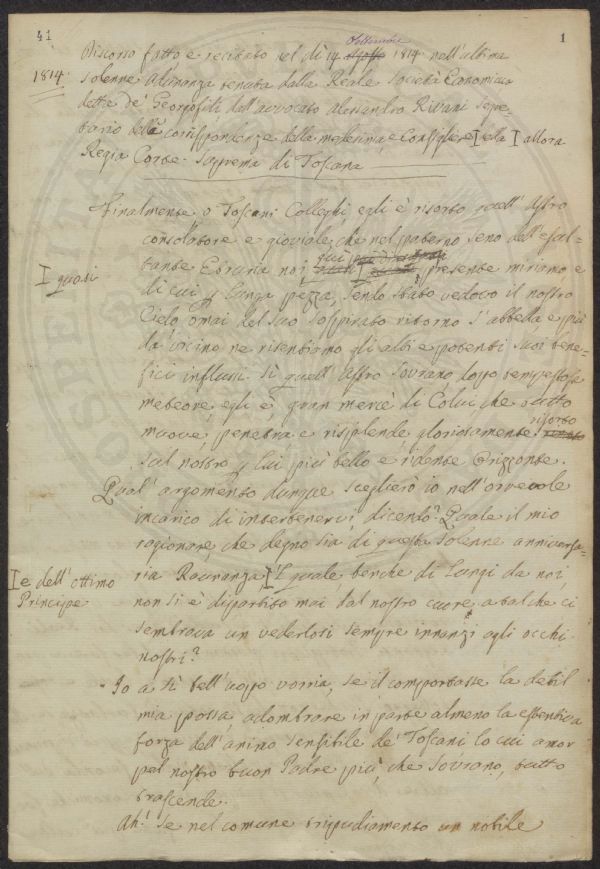 41
1
1814.
Discorso fatto e recitato nel dì 14 Agosto Settembre 1814 nell'ultima
solenne Adunanza tenuta dalla Reale Società Economica
detta de' Georgofili dall'avvocato Alessandro Rivani segre-
tario della corrispondenza della medesima, e Consigliere della I allora
Regia Corte Suprema di Toscana
Finalmente o Toscani Colleghi egli è risorto quell'Astro
consolatore e gioviale, che nel paterno seno dell'esul-
tante Etruria noi qui presente miriamo e
I quasi
di cui p lunga pezza, sendo stato vedovo il nostro
Cielo, omai del suo sospirato ritorno s'abbella e più
da vicino ne risentiamo gli alti e potenti suoi bene-
fici influssi. Sì quell'Astro Sovrano dopo tempestose
meteore, egli è, gran mercè di Colui che tutto
muove, penetra e risplende gloriosamente risorto
sul nostro p lui più bello e ridente Orizzonte.
Qual'argomento dunque sceglierò io nell'orrevole
incarico di intertenervi, dicendo? Quale il mio
ragionare, che degno sia di questa solenne anniversa-
I e dell'ottimo
Principe
ria Raunanza I il quale benche di lungi da noi,
non si è dipartito mai dal nostro cuore, a tal che ci
sembrava un vederlosi sempre innanzi agli occhi
nostri?
Io a tì bell'uopo vorria, se il comportasse la debil
mia possa, adombrare in parte almeno la
forza dell'animo sensibile de' Toscani lo cui amor
pel nostro buon Padre più, che Sovrano, tutto
trascende.
Ah! se nel comune tripudiamento un nobile